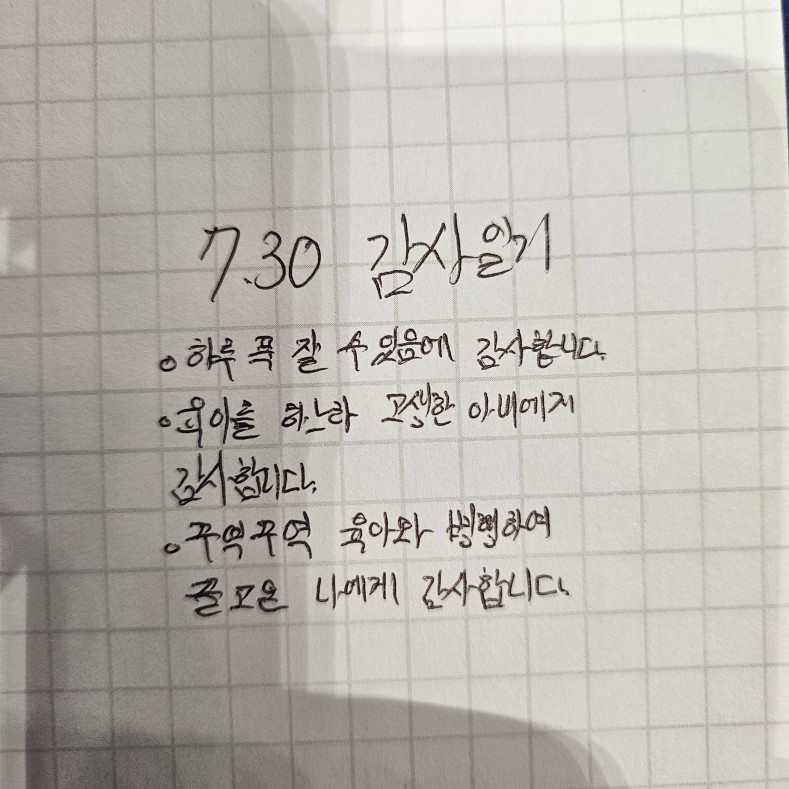 7.30 감사일기
하루 푹 잘 수 있음에 감사합니다.
하느라 고생한 아내에게
감사합니다.
꾸역꾸역 육아와 병행하여
나에게 감사합니다.